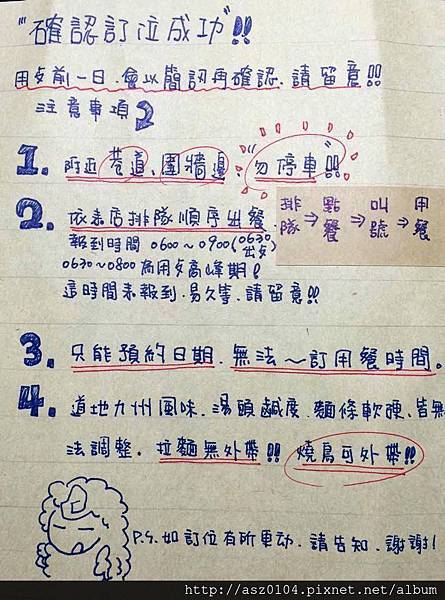 "確認訂位成功"!!
用餐前一日.會以簡訊再確認.請留意!!
注意事項
1. 附近巷道、圍牆邊"勿停車"!!
2. 依本店排隊順序出餐.
報到時間 0600~0900(0630出餐)
0630~0800為用餐高峰期!
這時間未報到.易久等.請留意!!
排隊⇒點餐⇒叫號⇒用餐
3. 只能預約日期.無法~訂用餐時間。
4. 道地九州風味.湯頭鹹度.麵條軟硬.皆無
法調整。拉麵無外帶!! 燒鳥可外帶!!
P.S.如訂位有所更动.請告知.謝謝!
http://asz0104.pixnet.net/album